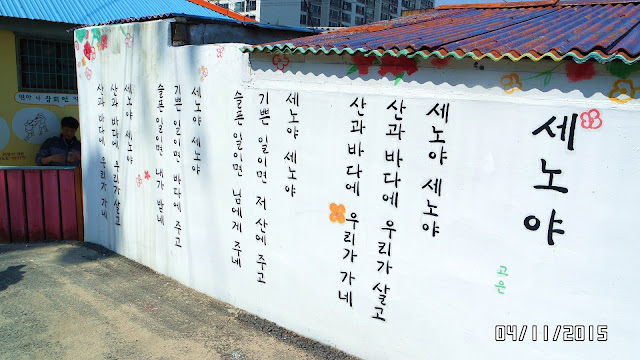 세노야
고은
세노야 세노야
산과 바다에 우리가 살고
산과 바다에 우리가 가네
세노야 세노야
기쁜 일이면 저 산에 주고
슬픈 일이면 님에게 주네
세노야 세노야
기쁜 일이면 바다에 주고
슬픈 일이면 내가 받네
세노야 세노야
산과 바다에 우리가 살고
산과 바다에 우리가 가네
04/11/2015